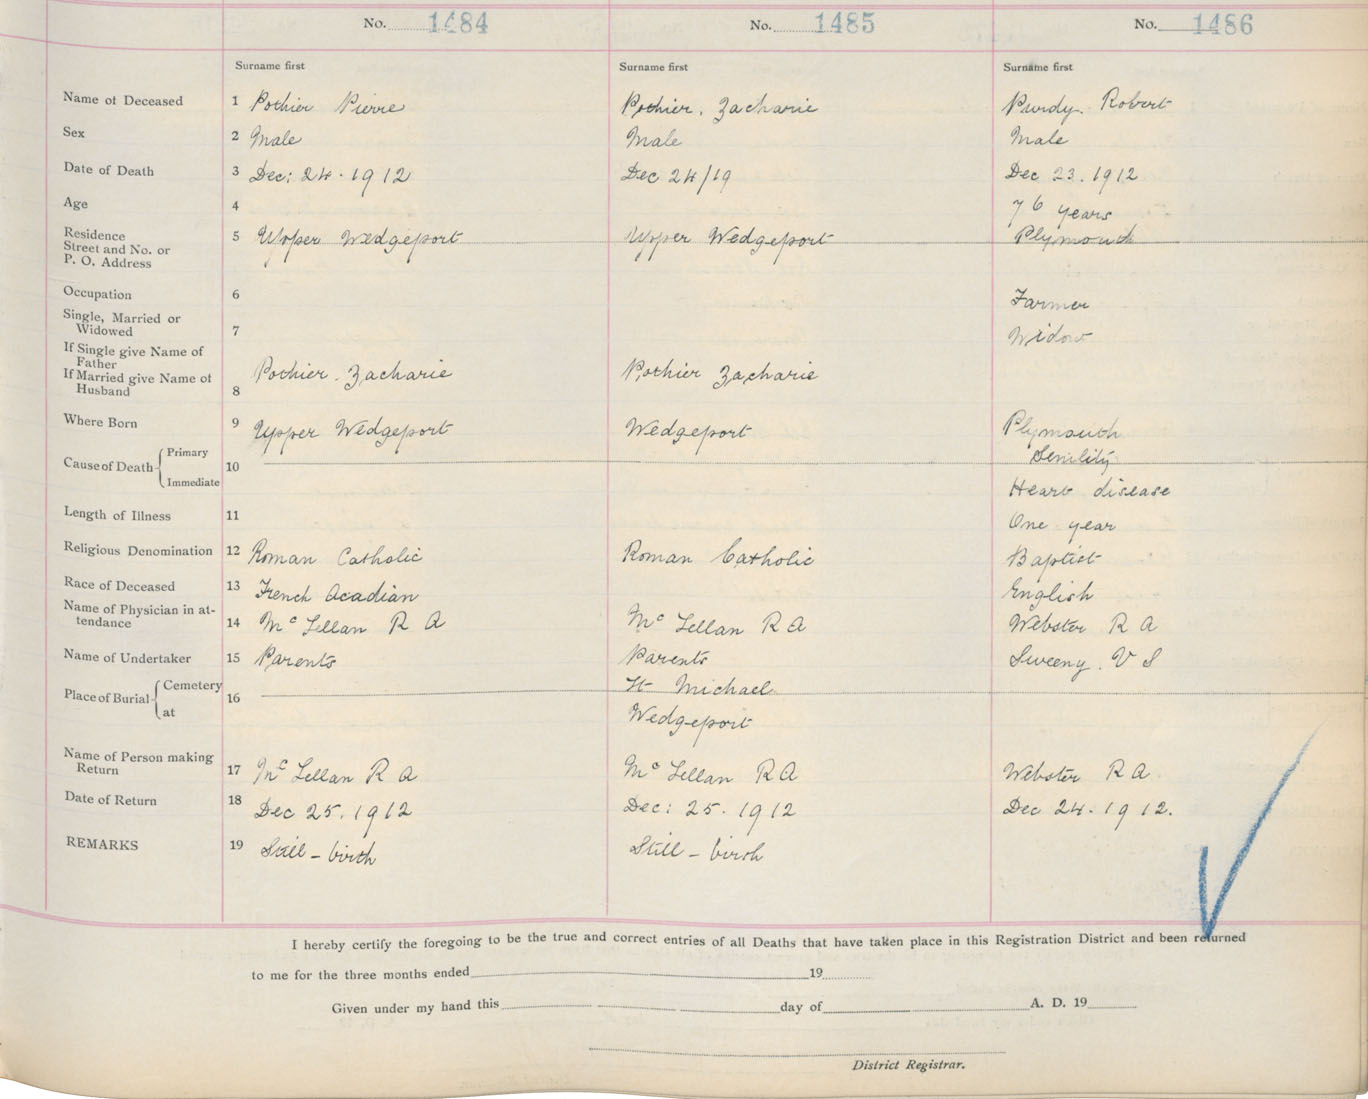 No. 1484 No. 1485 No. 1486
Surname first Surname first Surname first
Name of Deceased 1 Pothier Pierre Pothier, Zacharie Purdy. Robert
Sex 2 Male Male Male
Date of Death 3 Dec: 24. 1912 Dec 24/19 Dec 23. 1912
Age 4 76 years
Residence
Street and No. or
P. O. Address 5 Upper Wedgeport Upper Wedgeport Plymouth
Occupation 6 Farmer
Single, Married or
Widowed 7 Widow
If Single give Name of
Father
If Married give Name of
Husband 8 Pothier. Zacharie Pothier Zacharie
Where Born 9 Upper Wedgeport Wedgeport Plymouth
Cause of Death Primary 10 Senility
Immediate Heart disease
Length of Illness 11 One year
Religious Denomination 12 Roman Catholic Roman Catholic Baptist
Race of Deceased 13 French Acadian English
Name of Physician in at-
tendance 14 Mc Lellan R A Mc Lellan R A Webster R A
Name of Undertaker 15 Parents Parents Sweeny. V S
Place of Burial Cemetery 16 St Michael
at Wedgeport
Name of Person making
Return 17 Mc Lellan R A Mc Lellan R A Webster R A.
Date of Return 18 Dec 25. 1912 Dec: 25. 1912 Dec 24. 1912.
REMARKS 19 Still - birth Still - birth
I hereby certify the foregoing to be the true and correct entries of all Deaths that have taken place in this Registration District and been returned
to me for the three months ended 19
Given under my hand this day of A. D. 19
District Registrar.